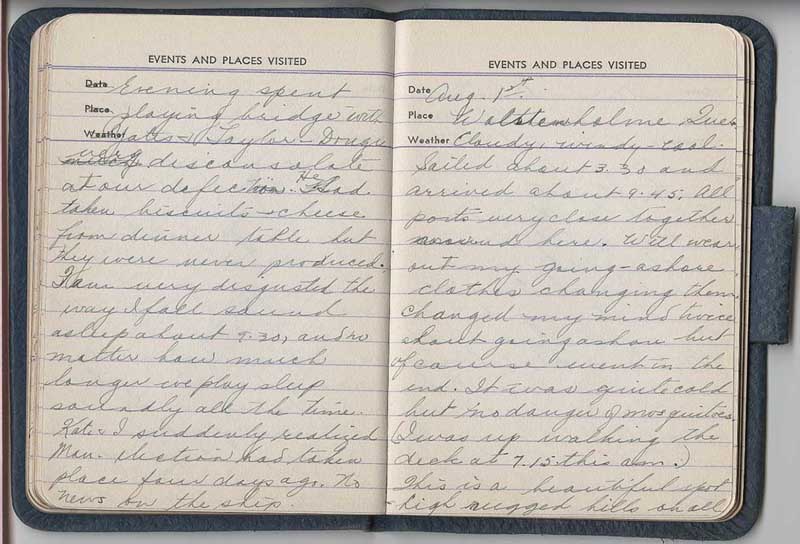 EVENTS AND PLACES VISITED
Date Evening spent
Place playing bridge with
Weather Watts & Taylor - Dougie
very disconsolate
at our defection. He had
taken biscuits & cheese
from dinner table but
they were never produced.
I am very disgusted the
way I fall sound
asleep about 9.30, and no
matter how much
longer we play sleep
soundly all the time.
Kate & I suddenly realized
Man. election had taken
place four days ago. No
news on the ship.
EVENTS AND PLACES VISITED
Date Aug. 1st.
Place Wolstenholme, Que.
Weather Cloudy, windy - cool.
Sailed about 3.30 and
arrived about 9.45. All
posts very close together
around here. Will wear
out my going-ashore
clothes changing them.
Changed my mind twice
about going ashore but
of course went in the
end. It was quite cold
but no danger of mosquitoes.
(I was up walking the
deck at 7.15 this a.m.)
This is a beautiful spot
- high rugged hills on all